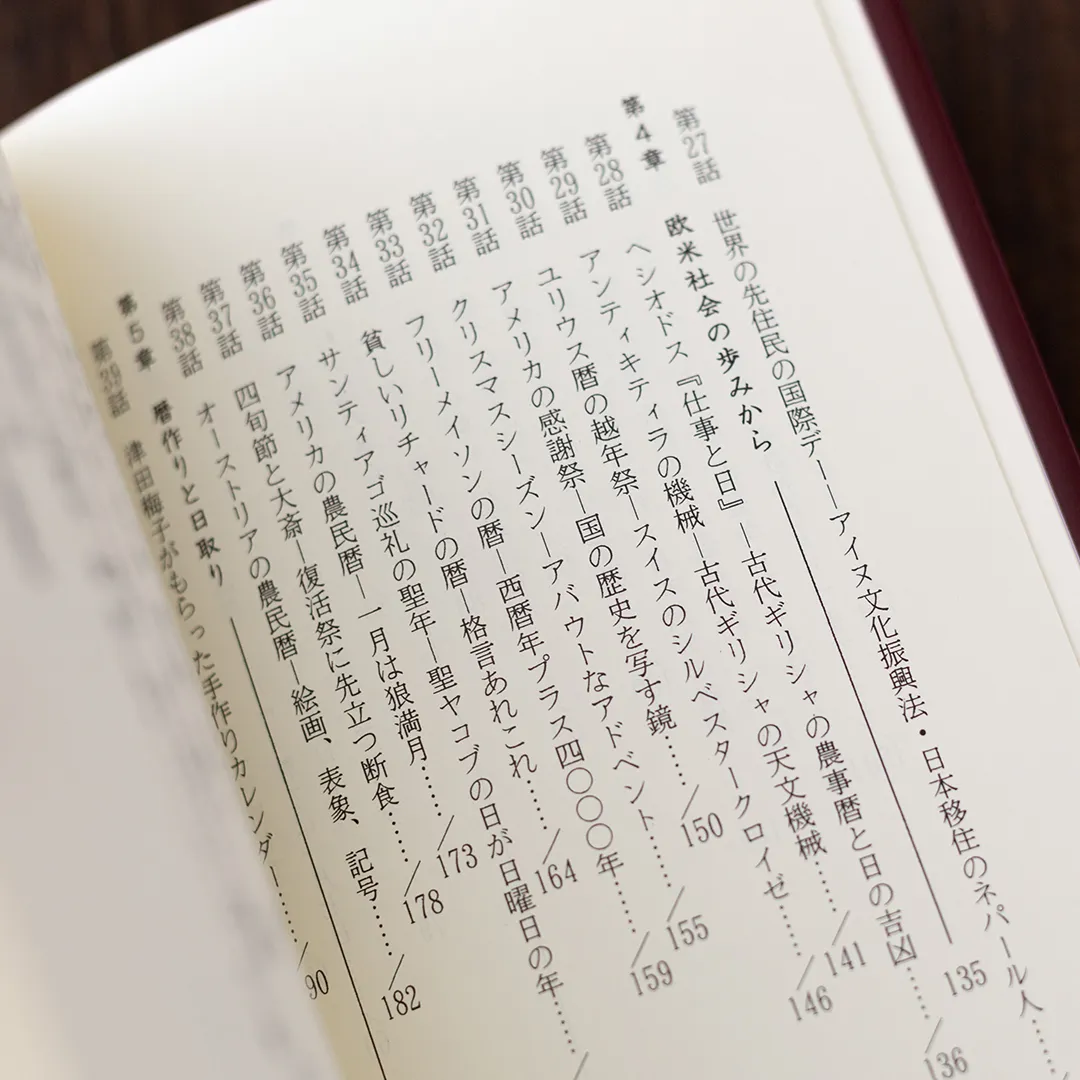 第27話 世界の先住民の国際デー―アイヌ文化振興法・日本移住のネパール人……
第4章 欧米社会の歩みから ――― 135
第28話 ヘシオドス『仕事と日』―古代ギリシャの農事暦と日の吉凶……/136
第29話 アンティキティラの機械―古代ギリシャの天文機械……/141
第30話 ユリウス暦の越年祭―スイスのシルベスタークロイゼ……/146
第31話 アメリカの感謝祭―国の歴史を写す鏡……/150
第32話 クリスマスシーズン―アバウトなアドベント……/155
第33話 フリーメイソンの暦―西暦年プラス四〇〇〇年……/159
第34話 貧しいリチャードの暦―格言あれこれ……/164
第35話 サンティアゴ巡礼の聖年―聖ヤコブの日が日曜日の年……/
第36話 アメリカの農民暦―一月は狼満月……/173
第37話 四旬節と大斎―復活祭に先立つ断食……/178
第38話 オーストリアの農民暦―絵画、表象、記号……/182
第5章 暦作りと日取り ―――
第39話 津田梅子がもらった手作りカレンダー……/90